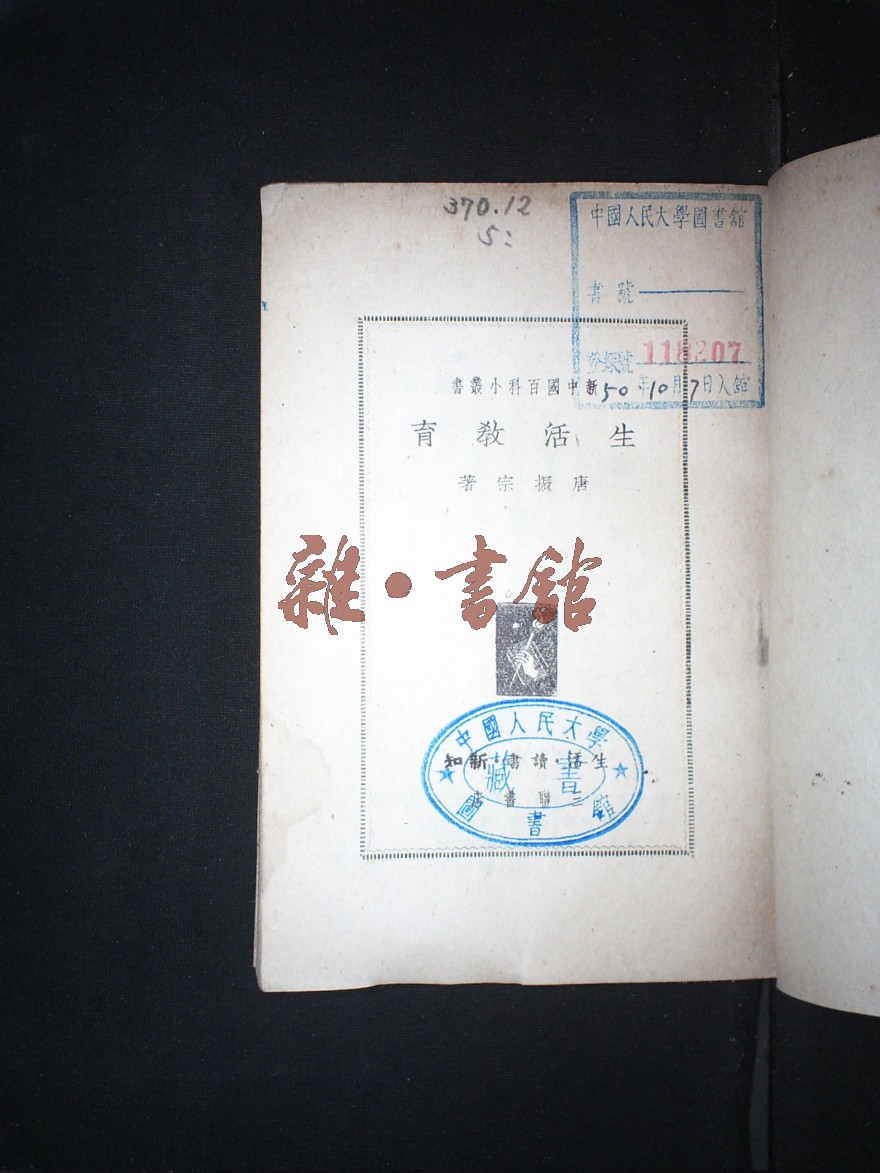 370.12
S:
中國人民大學圖書舘
書號
登錄號 118207
50年10月7日入舘
新中國百科小叢書
生活教育
唐振宗著
雜·書舘
中國人民大學
藏書
圖書舘
生活·讀書·新知
三聯書店